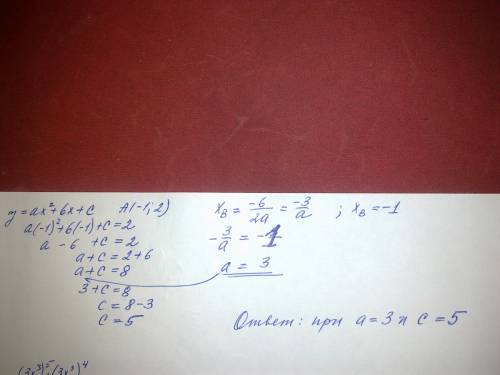 y = ax² + 6x + c A(-1; 2)
a(-1)² + 6(-1) + c = 2
a - 6 + c = 2
a + c = 2 + 6
a + c = 8
3 + c = 8
c = 8 - 3
c = 5
x_B = -6/2a = -3/a ; x_B = -1
-3/a = -1
a = 3
Ответ: при a = 3 и c = 5